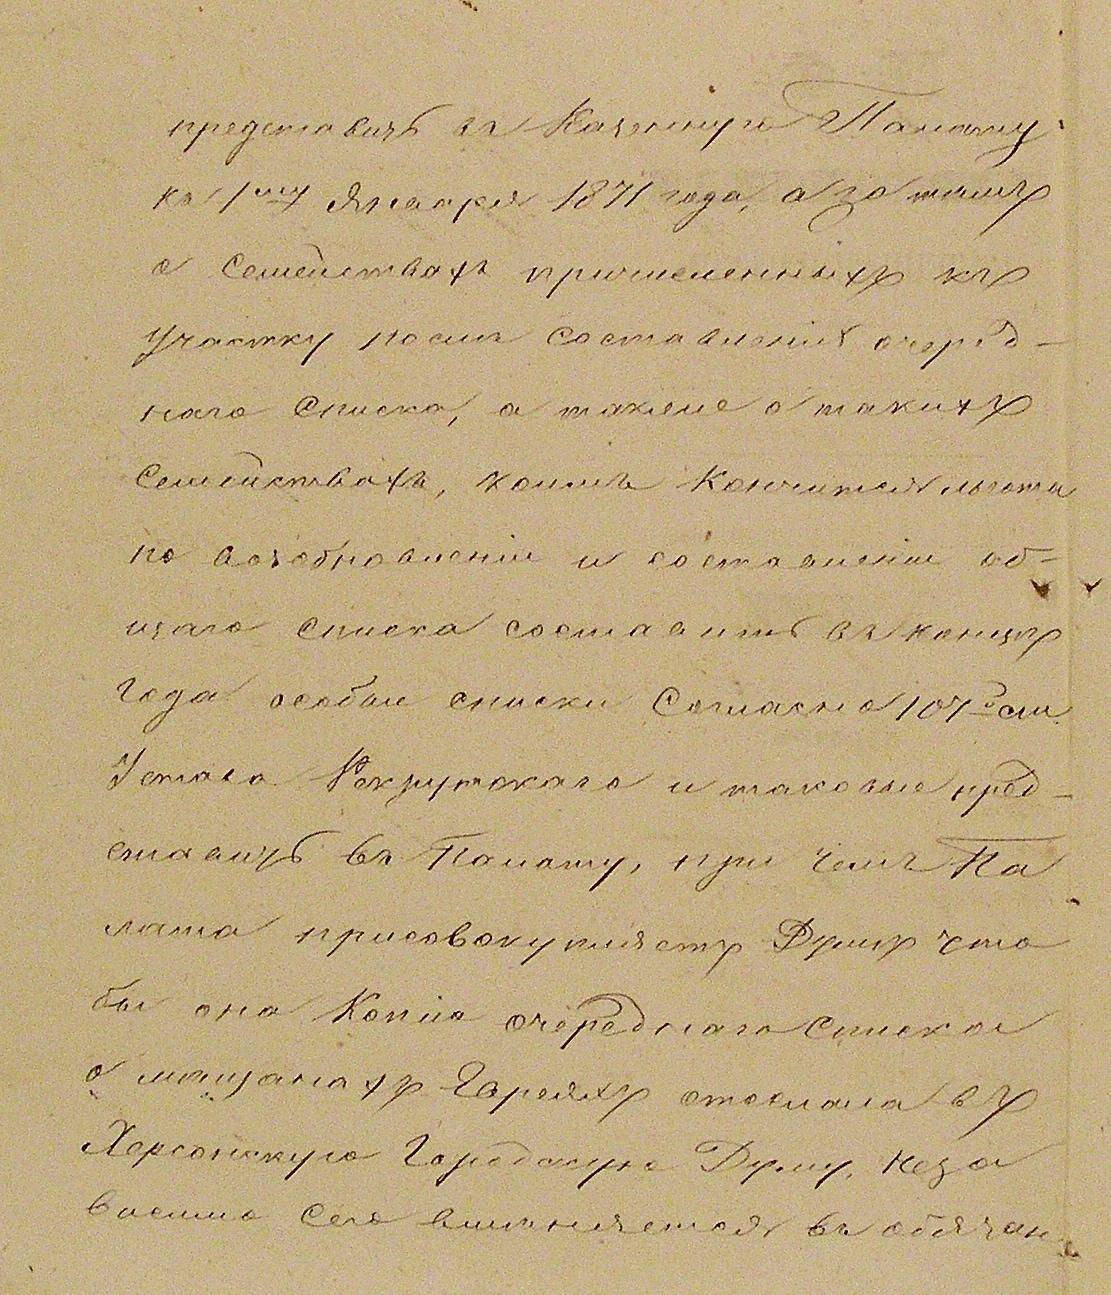 представить въ Казенную Палату
къ 1му Января 1871 года, а за темъ
о Семействахъ причисленныхъ къ
участку послѣ составленія очеред-
наго Списка, а также о такихъ
Семействахъ, коимъ Кончится льгота
по возобновленіи и составленіи об-
щаго Списка составить въ концѣ
года особые списки Согласно 107й ст.
Устава Рекрутскаго и таковые пред-
ставить въ Палату, при чемъ Па
лата присовокупляетъ Думѣ что
бы она Копію очереднаго Списка
о мещанахъ Евреяхъ отослала въ
Херсонскую Городскую Думу, неза
висимо Сего вмѣняется въ обязан